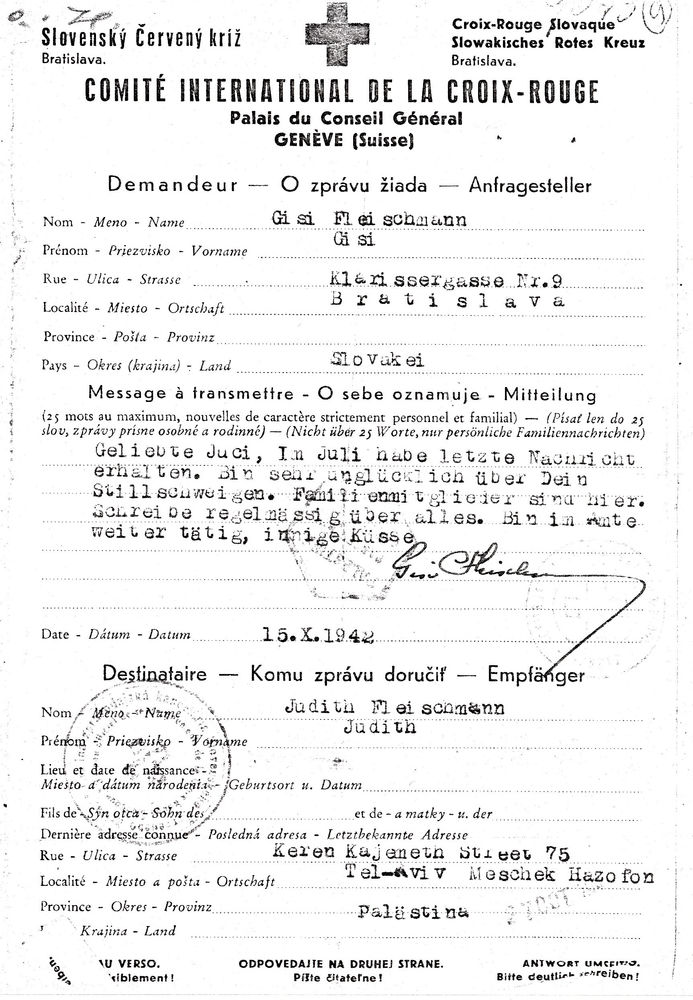 Slovenský Červený kríž
Bratislava.
Croix-Rouge Slovaque
Slowakisches Rotes Kreuz
Bratislava.
COMITÉ INTERNATIONAL DE LA CROIX-ROUGE
Palais du Conseil Général
GENÈVE (Suisse)
Demandeur — O zprávu žiada — Anfragesteller
Nom - Meno - Name Gisi Fleischmann
Prénom - Priezvisko - Vorname Gisi
Rue - Ulica - Strasse Klarissergasse Nr.9
Localité - Miesto - Ortschaft Bratislava
Province - Pošta - Provinz
Pays - Okres (krajina) - Land Slovakei
Message à transmettre - O sebe oznamuje - Mitteilung
(25 mots au maximum, nouvelles de caractère strictement personnel et familial) — (Písať len do 25
slov, zprávy prísne osobné a rodinné) — (Nicht über 25 Worte, nur persönliche Familiennachrichten)
Geliebte Juci, Im Juli habe letzte Nachricht
erhalten. Bin sehr unglücklich über Dein
Stillschweigen. Familienmitglieder sind hier.
Schreibe regelmässig über alles. Bin im Amte
weiter tätig, innige Küsse
Gisi Fleischmann
Date - Dátum - Datum 15.X.1942
Destinataire — Komu zprávu doručiť — Empfänger
Nom - Meno - Name Judith Fleischmann
Prénom - Priezvisko - Vorname Judith
Lieu et date de naissance -
Miesto a dátum narodenia - Geburtsort u. Datum
Fils de - Syn otca - Sohn des et de - a matky - u. der
Dernière adresse connue - Posledná adresa - Letztbekannte Adresse
Rue - Ulica - Strasse Keren Kajemeth Street 75
Localité - Miesto a pošta - Ortschaft Tel-Aviv Meschek Hazofon
Province - Okres - Provinz Palästina
Krajina - Land
AU VERSO. ODPOVEDAJTE NA DRUHEJ STRANE. ANTWORT UMSEITIG.
Píšte čitateľne! Bitte deutlich schreiben!